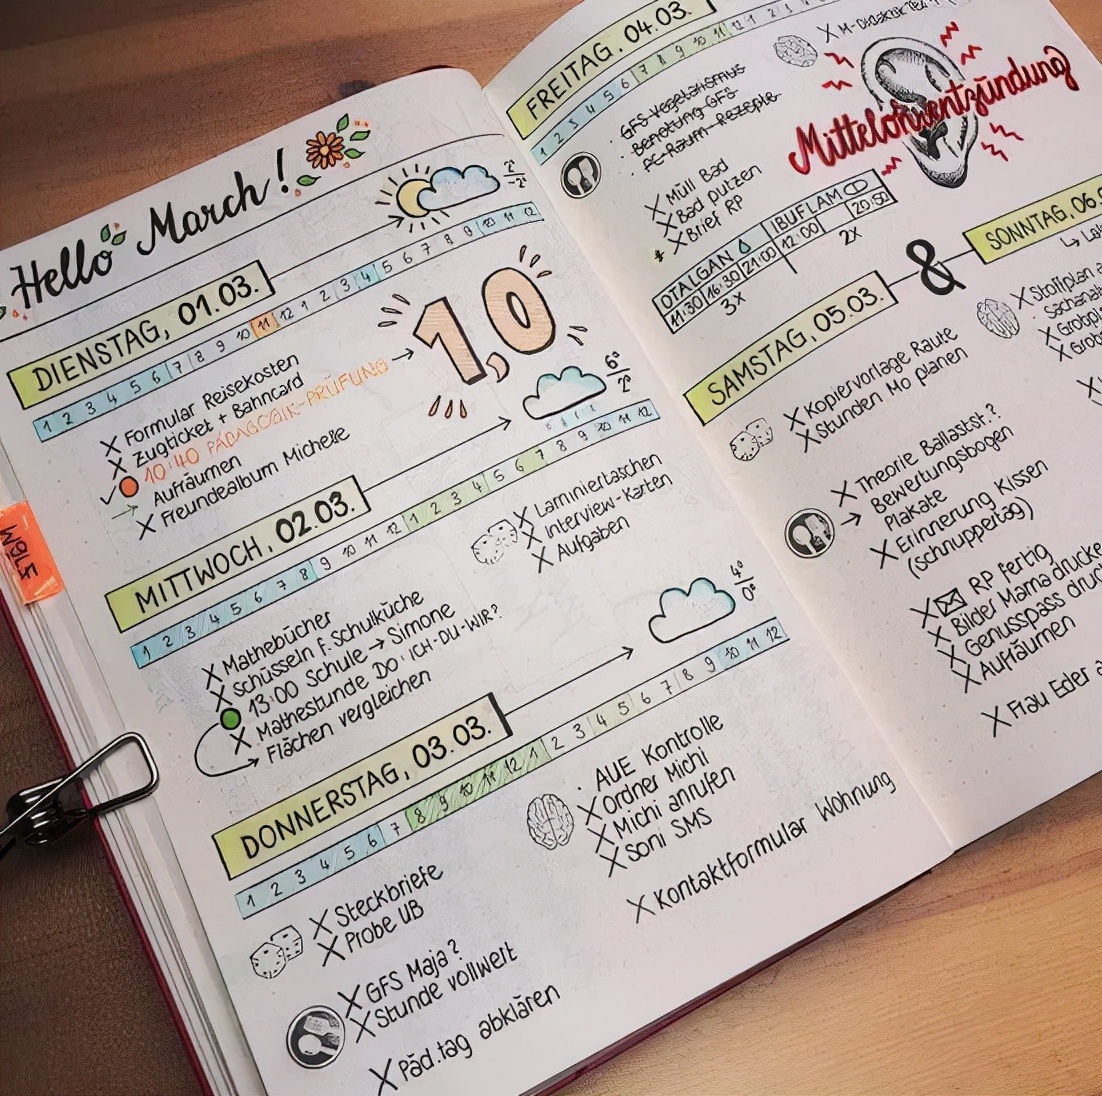 Hello March!
2°
-2°
DIENSTAG, 01.03.
1 2 3 4 5 6 7 8 9 10 11 12 1 2 3 4 5 6 7 8 9 10 11 12
X Formular Reisekosten
X Zugticket + Bahncard
10:40 PÄDAGOGIK-PRÜFUNG → 1,0
Aufräumen
X Freundealbum Michelle
6°
2°
MITTWOCH, 02.03.
1 2 3 4 5 6 7 8 9 10 11 12 1 2 3 4 5 6 7 8 9 10 11 12
X Mathebücher
X Schüsseln f. Schulküche
13:00 Schule → Simone
X Mathestunde Do "ICH-DU-WIR?
Flächen vergleichen
X Laminiertaschen
X Interview-Karten
X Aufgaben
4°
0°
DONNERSTAG, 03.03.
1 2 3 4 5 6 7 8 9 10 11 12 1 2 3 4 5 6 7 8 9 10 11 12
X Steckbriefe
X Probe UB
X GFS Maja?
X Stunde vollwert
X Päd.tag abklären
· AUE Kontrolle
X Ordner Michi
X Michi anrufen
X Soni SMS
X Kontaktformular Wohnung
FREITAG, 04.03.
1 2 3 4 5 6 7 8 9 10 11 12 1 2 3 4
· GFS Vegetarismus
· Benotung GFS
· PC-Raum-Rezepte
X Müll Bad
X Bad putzen
X Brief RP
X M-Didaktik
Mittelohrentzündung
OTALGAN IBUFLAM
11:30 16:30 21:00 12:00 20:50
3x 2x
SAMSTAG, 05.03. & SONNTAG, 06.
X Kopiervorlage Raute
X Stunden Mo planen
X Theorie Ballastst.?
→ Bewertungsbogen
Plakate
X Erinnerung Kissen
(Schnuppertag)
X RP fertig
X Bilder Mama drucke
X Genusspass druc
X Aufräumen
X Frau Eder a
X Stoffplan
Sachana
X Grobpl
X Grob
WG15